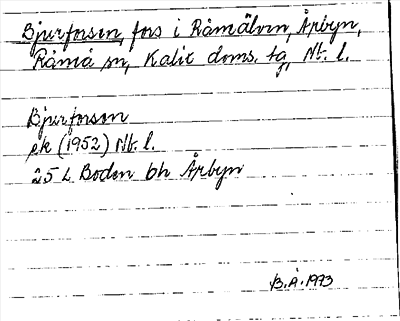 Bjurforsen, fors i Råmälven, Årbyn,
Råneå sn, Kalix doms. tg, Nb. l.
Bjurforsen
ek (1952) Nb. l.
25 L Boden bh Årbyn
B.Å. 1973